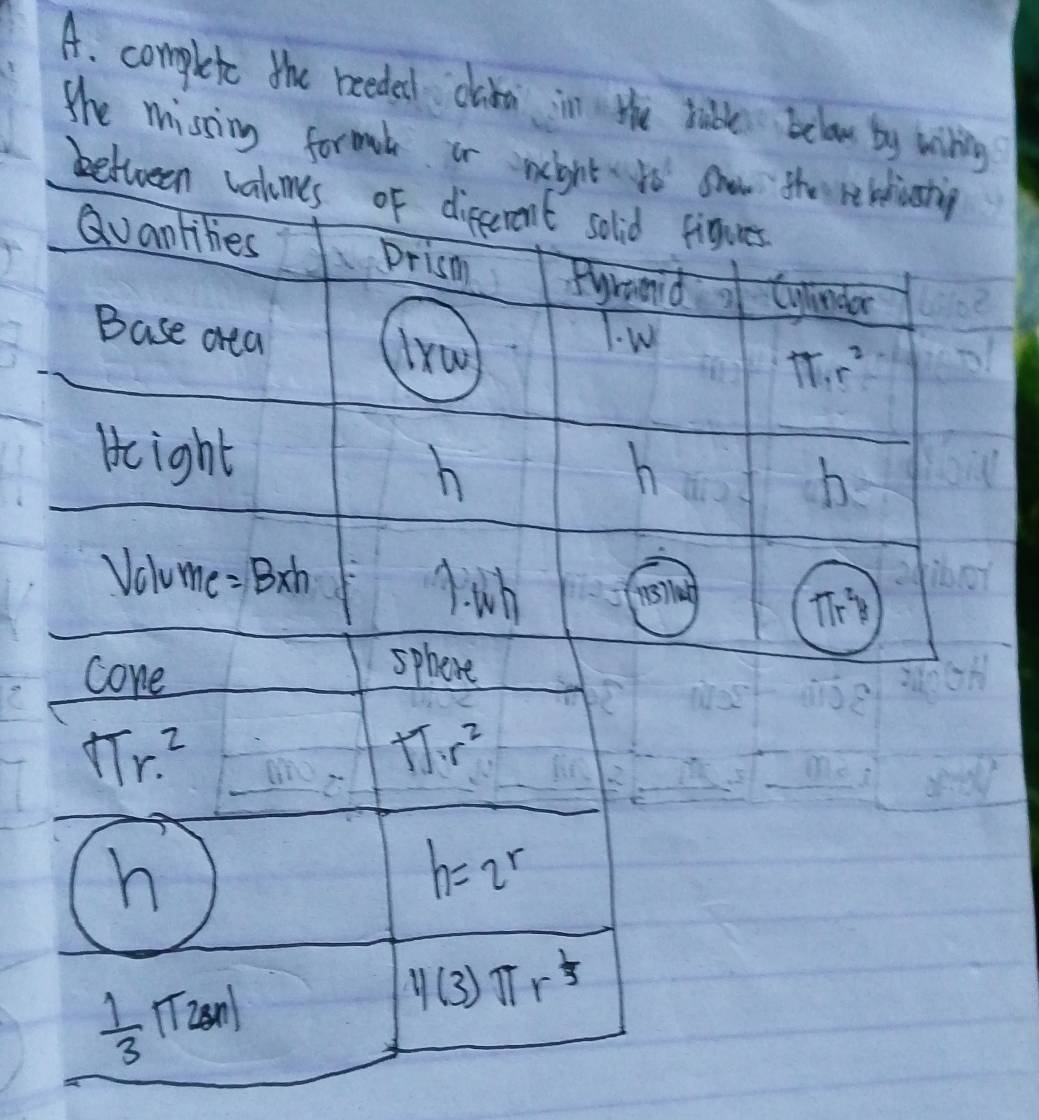 A. complete the needed data in the table below by writing
the missing formula or height to show the relationship
between valumes OF different solid figures.
Quantities Prism Pyramid Cylinder
Base area l x w l.w π.r²
Height h h h
Volume = Bxh l.wh πr²h
Cone sphere
πr.² π.r²
h h = 2r
1/3 π 4(3) π r